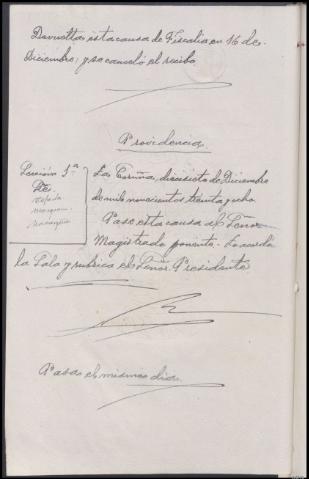 Devuelta esta causa de Fiscalia en 16 de
Diciembre; y se canceló el recibo
Providencia
Sección 1ª
La Coruña, diecisiete de Diciembre
de mil novecientos treinta y ocho
Pase esta causa al Señor
Magistrado ponente. Lo acordó
la Sala y rubrica el Señor Presidente
Pasa el mismo dia